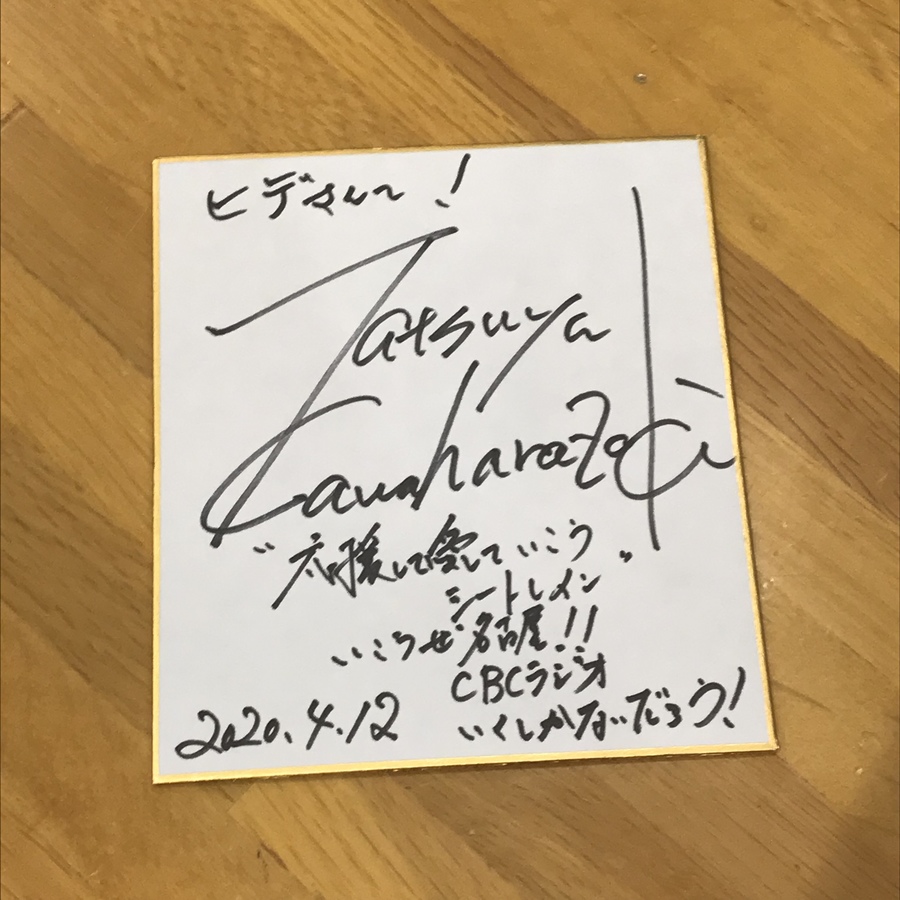 ヒデさんへ!
Tatsuya
Kawaharazaki
"応援して愛していこう"
シートレメン
いこうぜ名古屋!!
CBCラジオ
2020.4.12 いくしかないだろう!